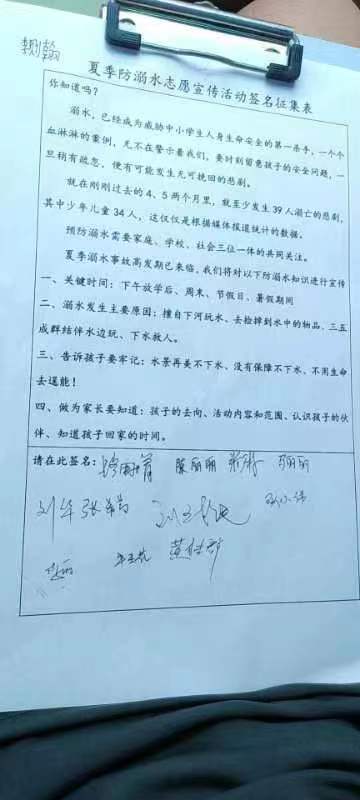 夏季防溺水志愿宣传活动签名征集表
你知道吗？
溺水，已经成为威胁中小学生人身生命安全的第一杀手，一个个
血淋淋的案例，无不在警示着我们，要时刻留意孩子的安全问题，一
旦稍有疏忽，便有可能发生无可挽回的悲剧。
就在刚刚过去的4、5两个月里，就至少发生39人溺亡的悲剧，
其中少年儿童34人，这仅仅是根据媒体报道统计的数据。
预防溺水需要家庭、学校、社会三位一体的共同关注。
夏季溺水事故高发期已来临，我们将对以下防溺水知识进行宣传
一、关键时间：下午放学后、周末、节假日、暑假期间
二、溺水发生主要原因：擅自下河玩水、去捡掉到水中的物品、三五
成群结伴水边玩、下水救人。
三、告诉孩子要牢记：水景再美不下水、没有保障不下水、不用生命
去逞能！
四、做为家长要知道：孩子的去向、活动内容和范围、认识孩子的伙
伴、知道孩子回家的时间。
请在此签名： 陈丽丽